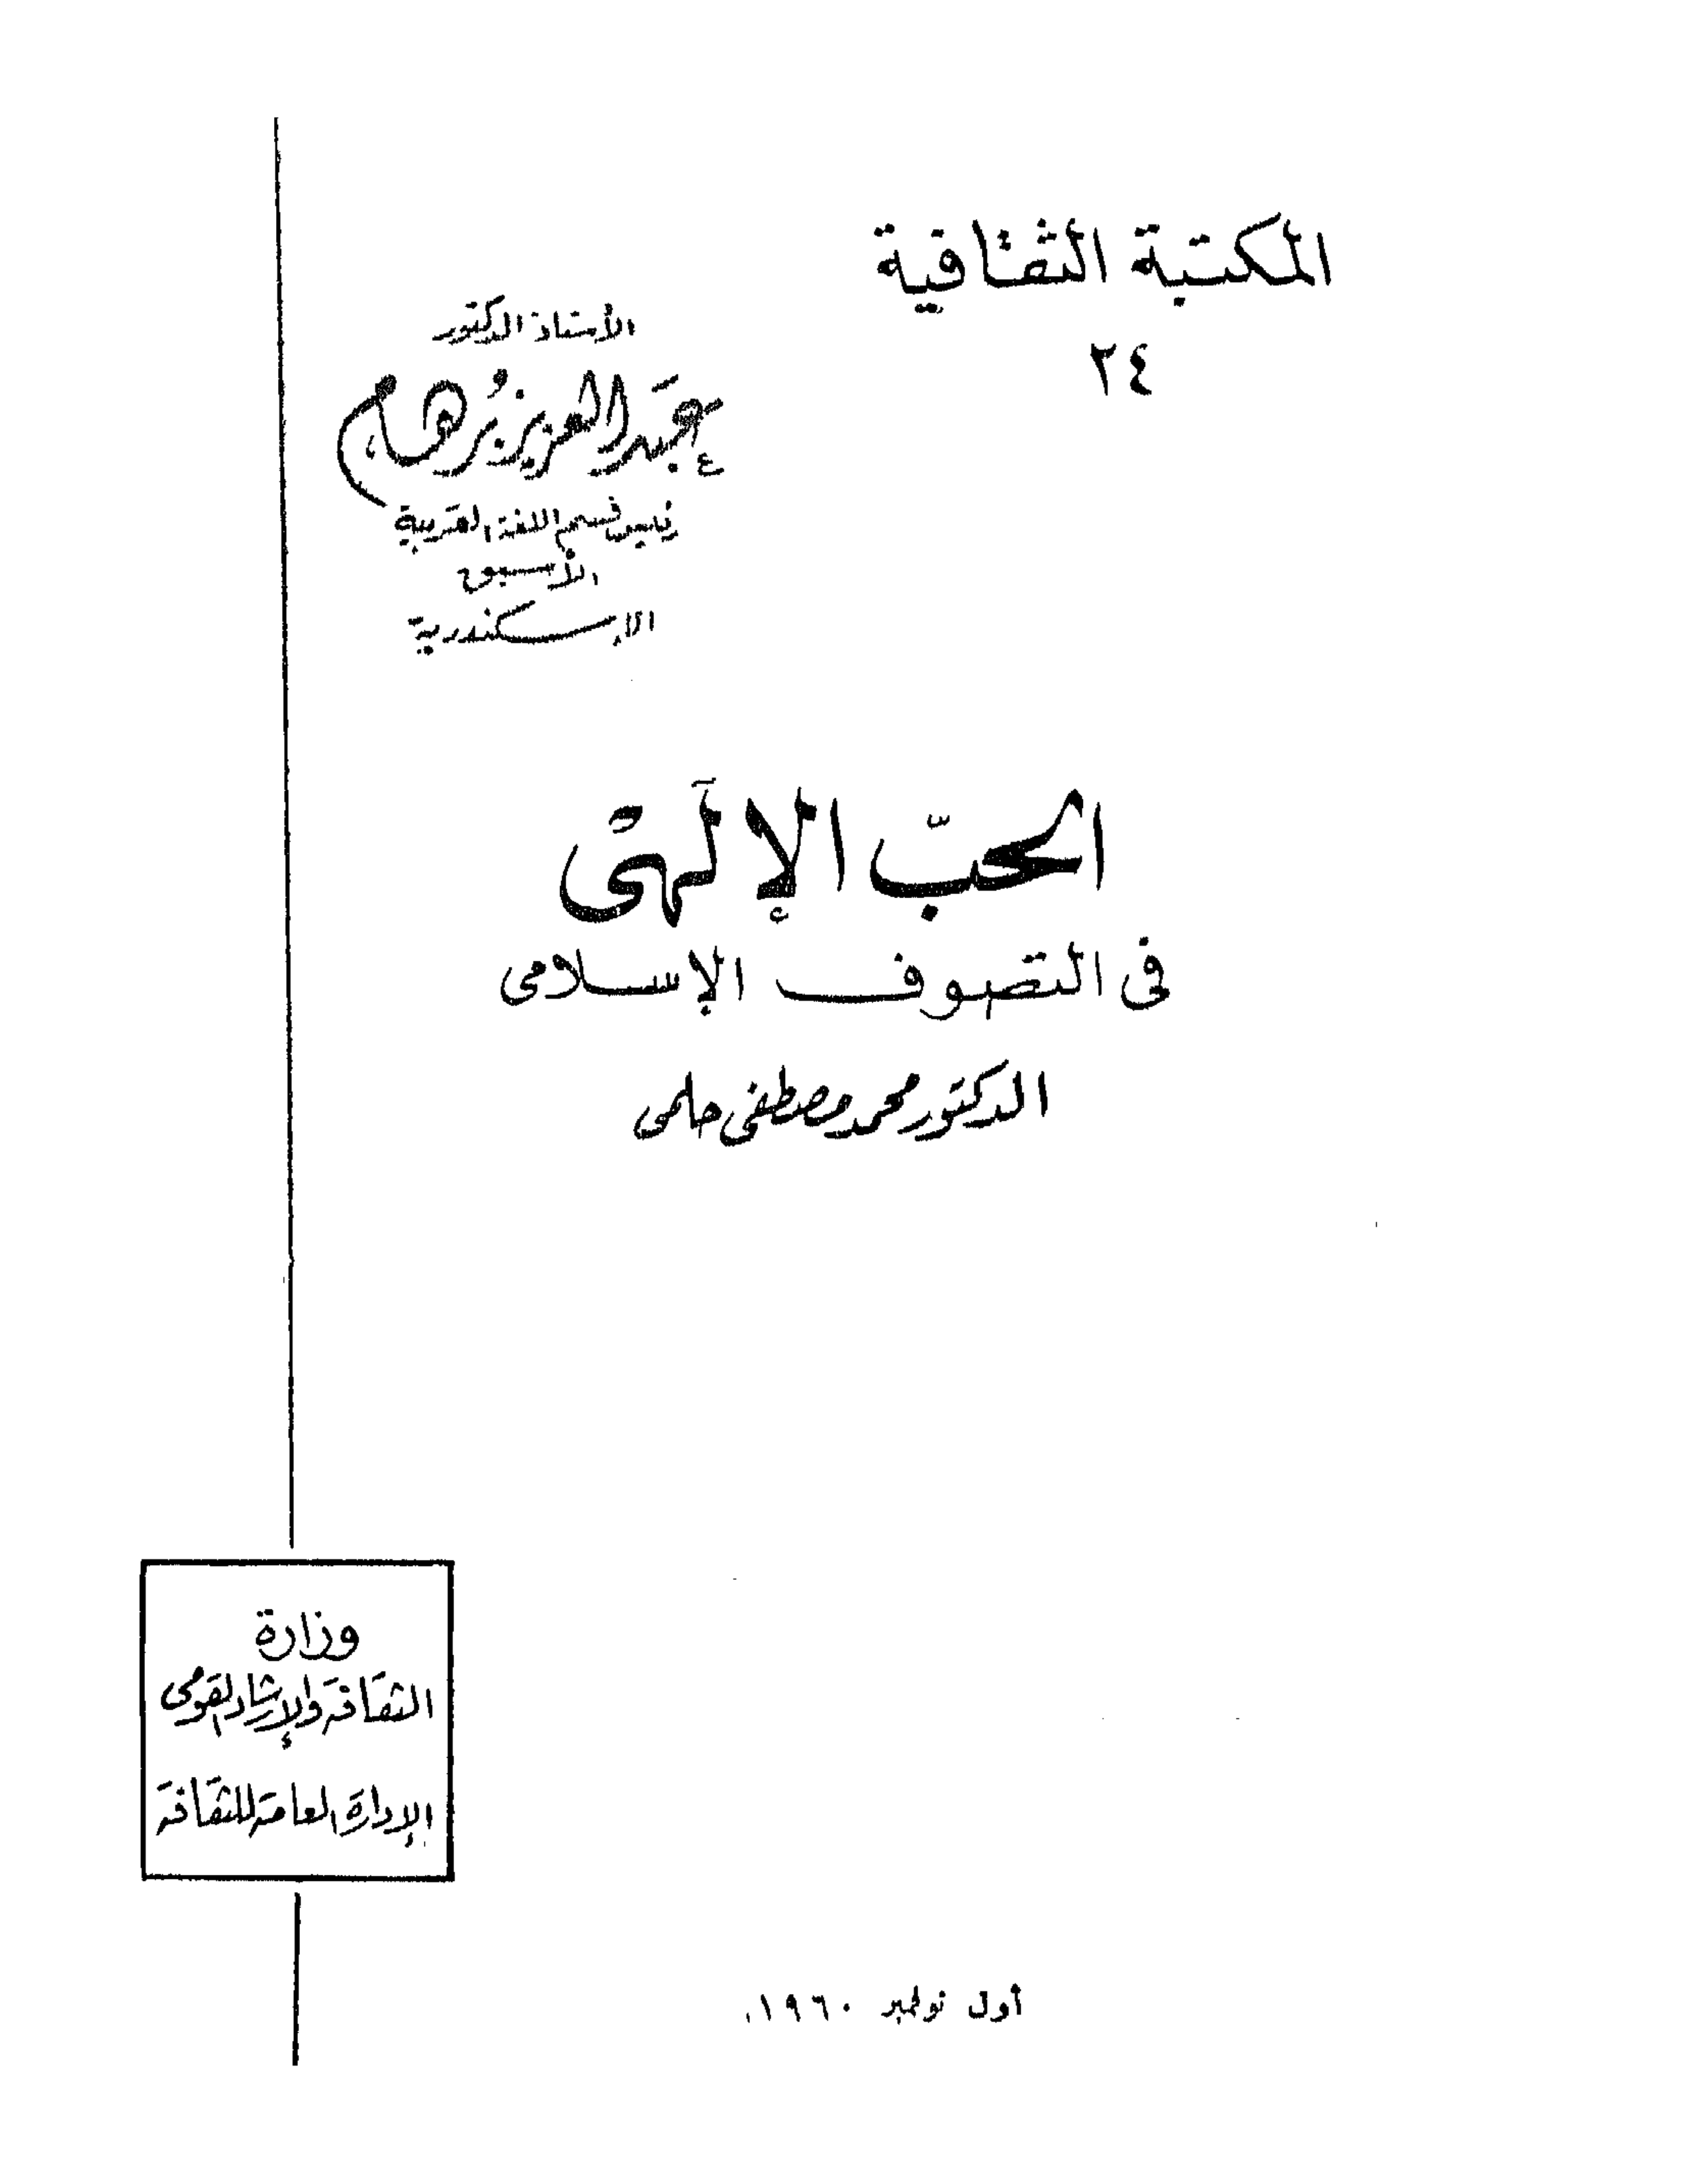 المكتبة الثقافية
٢٤
الأستاذ الدكتور
عبد العزيز برهام
رئيس قسم اللغة العربية
الأسبق
الإسكندرية
الحبّ الإلٰهى
فى التصوف الإسلامى
الدكتور محمد مصطفى حلمى
وزارة
الثقافة والإرشاد القومى
الإدارة العامة للثقافة
أول نوفمبر ١٩٦٠